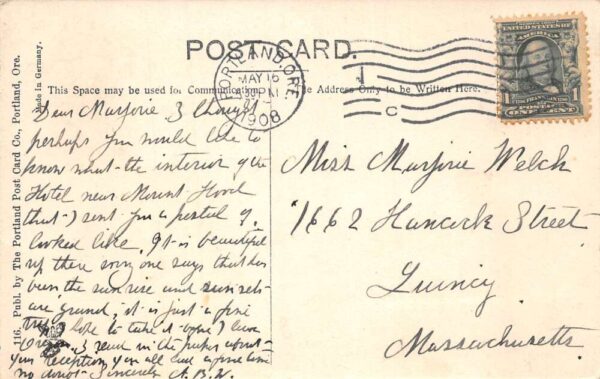 POST CARD.
This Space may be used for Communication. The Address Only to be Written Here.
116. Publ. by The Portland Post Card Co., Portland, Ore.
Made in Germany.
PORTLAND, ORE.
MAY 16
1908
1
C
SERIES 1902
1 POSTAGE ONE CENT 1
Dear Marjorie I thought
perhaps you would like to
know what the interior of the
Hotel near Mount Hood
that I sent you a postal of,
looked like. It is beautiful
up there every one says that has
been the sunrise and sunsets
are grand, it is just a fine
trip, I hope to take it before I leave
Oregon. I read in the paper about
your reception you all had a fine time
no doubt. Sincerely A. B. W.
Miss Marjorie Welch
1662 Hancock Street
Quincy
Massachusetts.